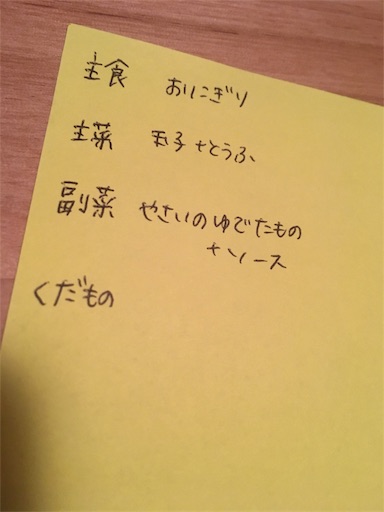 主食 おにぎり
主菜 玉子+とうふ
副菜 やさいのゆでたもの
+ソース
くだもの